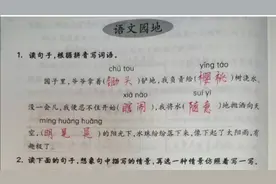 语文园地
1. 读句子,根据拼音写词语。
chú tou yīng táo
园子里,爷爷拿着(锄头)铲地,我负责给(樱桃)树浇水。
xiā nào suí yì
没一会儿,我便忍不住开始(瞎闹),我将水(随意)地抛洒向天
míng huǎng huǎng
空,(明晃晃)的阳光下,水珠纷纷落下来,像下起了太阳雨,有
趣极了。
2. 读下面的句子,想象句中描写的情景,再选一种情景仿照着写一写。